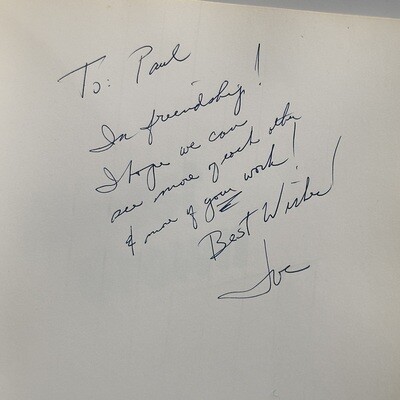 To: Paul
In friendship!
I hope we can
see more of each other
& more of your work!
Best Wishes!
Joe